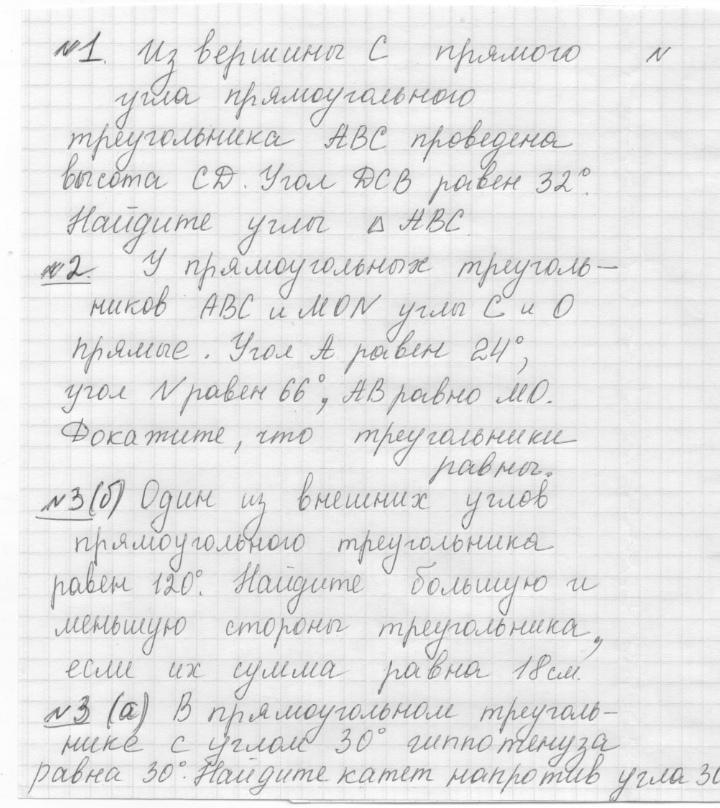 №1. Из вершины C прямого N
угла прямоугольного
треугольника ABC проведена
высота CD. Угол DCB равен 32°.
Найдите углы △ ABC.
№2. У прямоугольных треуголь-
ников ABC и MON углы C и O
прямые. Угол A равен 24°,
угол N равен 66°, AB равно MO.
Докажите, что треугольники
равны.
№3 (б) Один из внешних углов
прямоугольного треугольника
равен 120°. Найдите большую и
меньшую стороны треугольника,
если их сумма равна 18 см.
№3 (а) В прямоугольном треуголь-
нике с углом 30° гиппотенуза
равна 30°. Найдите катет напротив угла 30